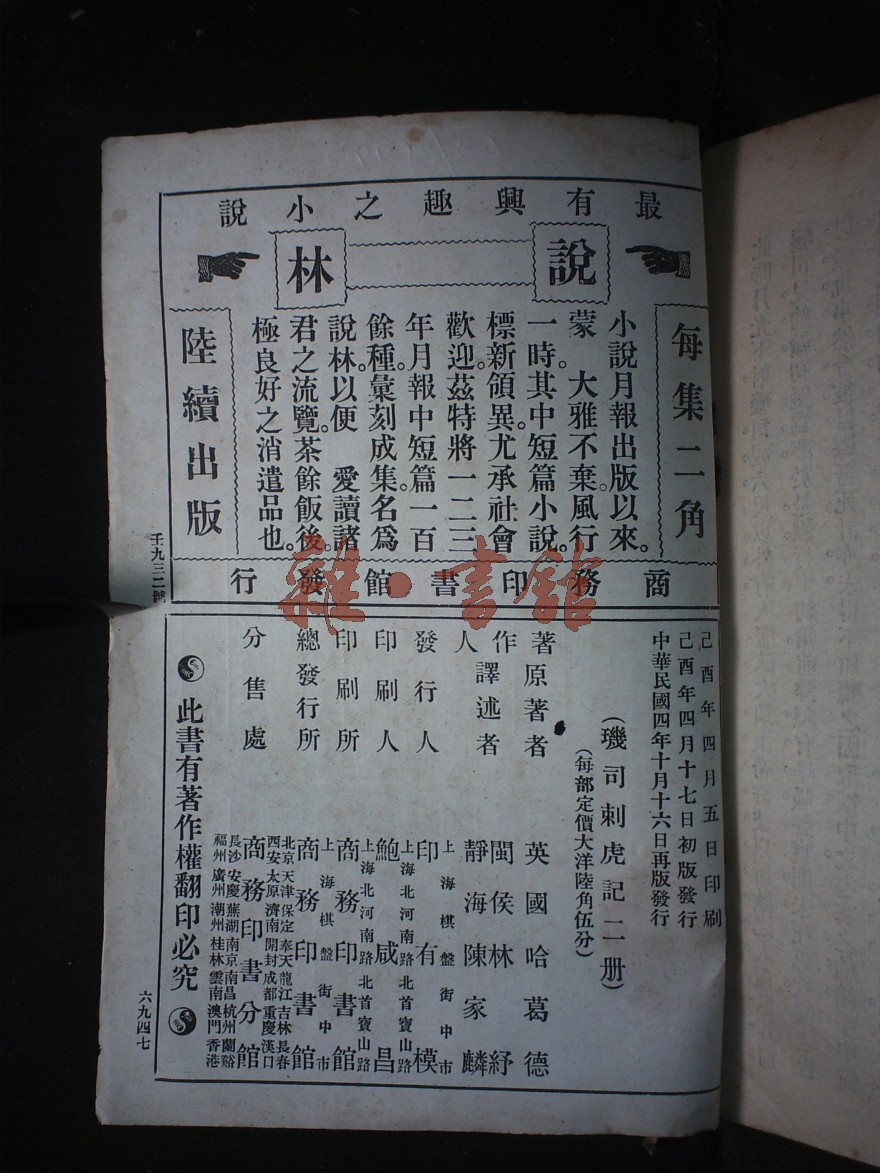 最有興趣之小說
說林
每集二角
小說月報出版以來。
蒙 大雅不棄。風行
一時。其中短篇小說。
標新領異。尤承社會
歡迎。茲特將一二三
年月報中短篇一百
餘種。彙刻成集。名爲
說林。以便 愛讀諸
君之流覽。茶餘飯後。
極良好之消遣品也。
陸續出版
商務印書館發行
壬九三二號
己酉年四月五日印刷
己酉年四月十七日初版發行
中華民國四年十月十六日再版發行
(璣司刺虎記二册)
(每部定價大洋陸角伍分)
著作人
原著者 英國哈葛德
譯述者 閩侯林紓
靜海陳家麟
發行人 印有模
上海棋盤街中市
印刷人 鮑咸昌
上海北河南路北首寶山路
印刷所 商務印書館
上海北河南路北首寶山路
總發行所 商務印書館
上海棋盤街中市
分售處 商務印書分館
北京天津保定奉天龍江吉林長春
西安太原濟南開封成都重慶漢口
長沙安慶蕪湖南京南昌杭州蘭谿
福州廣州潮州桂林雲南澳門香港
此書有著作權翻印必究
六九四七
雜·書館